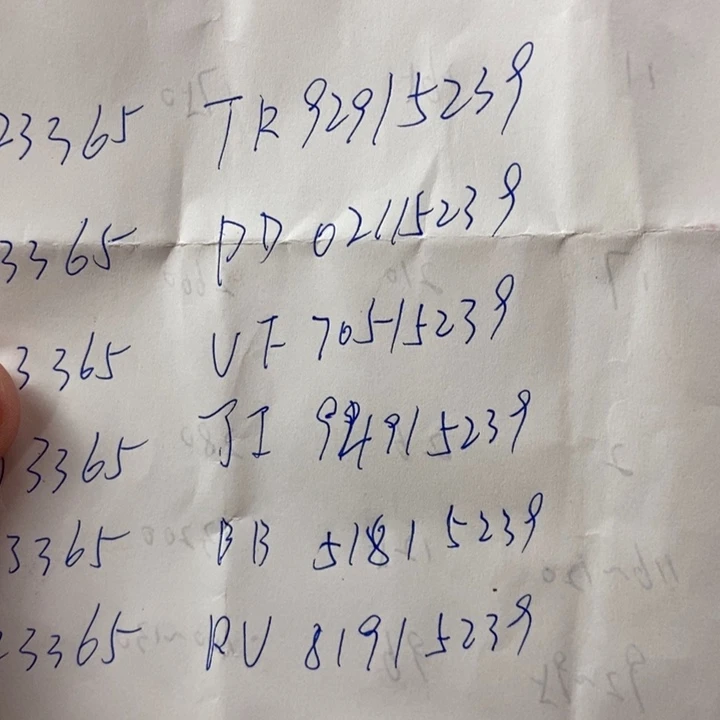 23365 TR 92915239
3365 DD 02115239
3365 VF 70515239
3365 JI 94915239
3365 BB 51815239
3365 RV 81915239